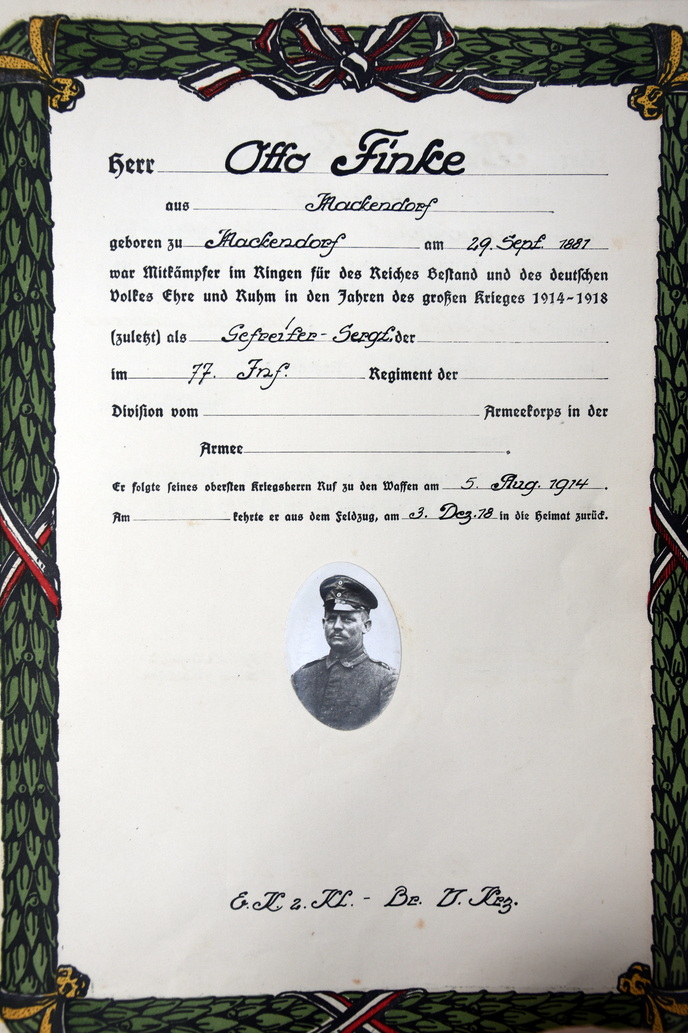 Herr Otto Finke
aus Mackendorf
geboren zu Mackendorf am 29. Sept. 1881
war Mitkämpfer im Ringen für des Reiches Bestand und des deutschen
Volkes Ehre und Ruhm in den Jahren des großen Krieges 1914-1918
(zuletzt) als Gefreiter - Sergt. der
im 77. Inf. Regiment der
Division vom Armeekorps in der
Armee .
Er folgte seines obersten Kriegsherrn Ruf zu den Waffen am 5. Aug. 1914.
Am kehrte er aus dem Feldzug, am 3. Dez. 18 in die Heimat zurück.
E. K. 2. Kl. - Br. V. Krz.